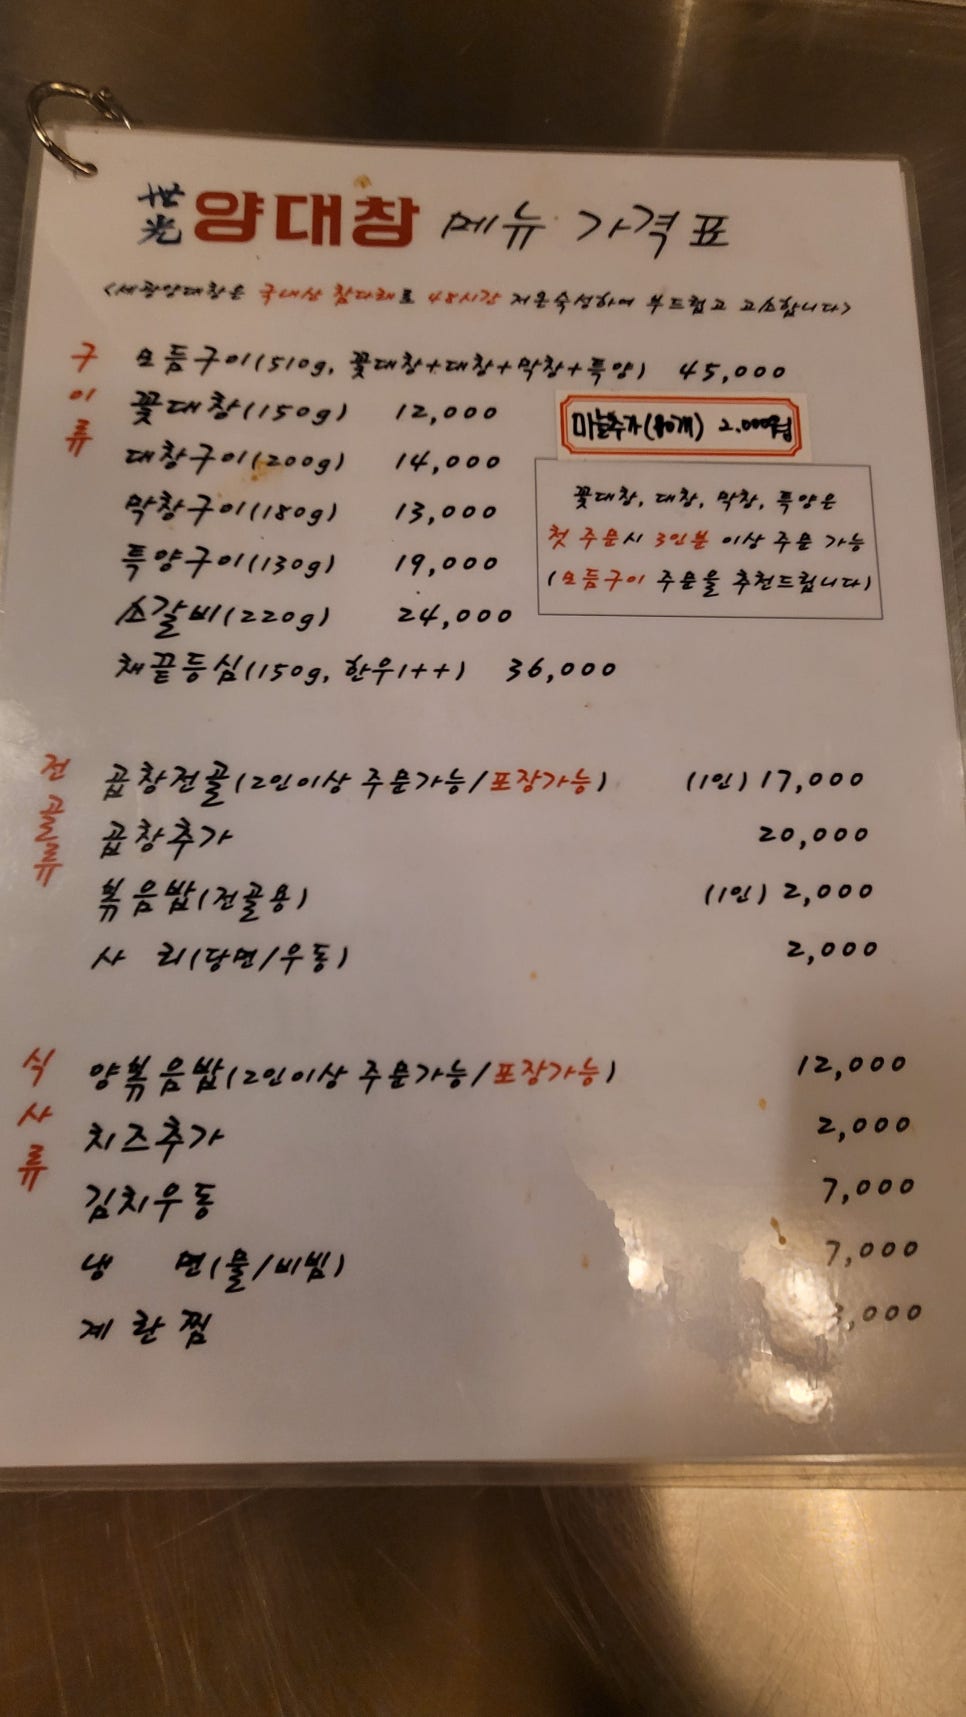 世光 양대창 메뉴 가격표
<세광양대창은 국내산 참다래로 48시간 저온숙성하여 부드럽고 고소합니다>
구이류
모듬구이(510g, 꽃대창+대창+막창+특양) 45,000
꽃대창(150g) 12,000
마늘추가(80개) 2.000원
대창구이(200g) 14,000
막창구이(180g) 13,000
특양구이(130g) 19,000
소갈비(220g) 24,000
채끝등심(150g, 한우1++) 36,000
꽃대창, 대창, 막창, 특양은
첫 주문시 3인분 이상 주문 가능
(모듬구이 주문을 추천드립니다)
전골류
곱창전골(2인이상 주문가능/포장가능) (1인) 17,000
곱창추가 20,000
볶음밥(전골용) (1인) 2,000
사 리(당면/우동) 2,000
식사류
양볶음밥(2인이상 주문가능/포장가능) 12,000
치즈추가 2,000
김치우동 7,000
냉 면(물/비빔) 7,000
계란찜 3,000